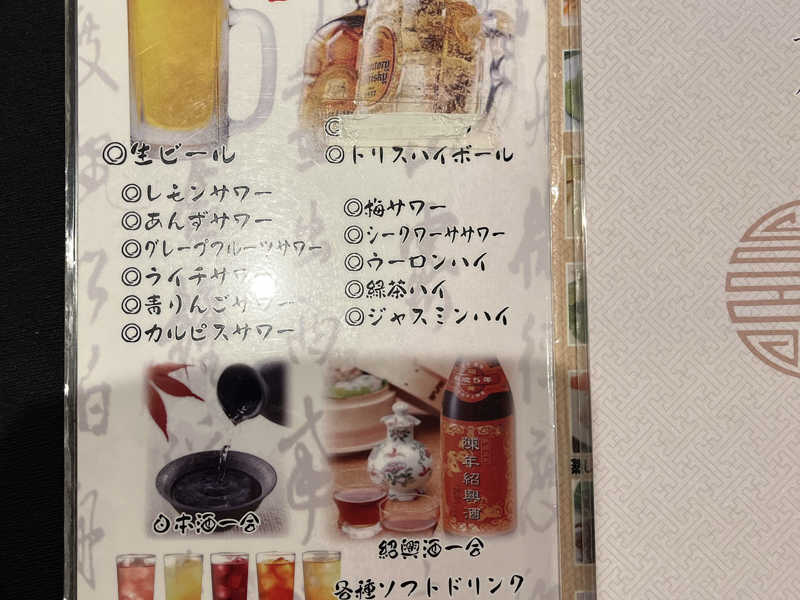 ◎生ビール
◎トリスハイボール
◎レモンサワー
◎あんずサワー
◎グレープフルーツサワー
◎ライチサワー
◎青りんごサワー
◎カルピスサワー
◎梅サワー
◎シークワーササワー
◎ウーロンハイ
◎緑茶ハイ
◎ジャスミンハイ
陳年紹興酒
日本酒一合
紹興酒一合
各種ソフトドリンク